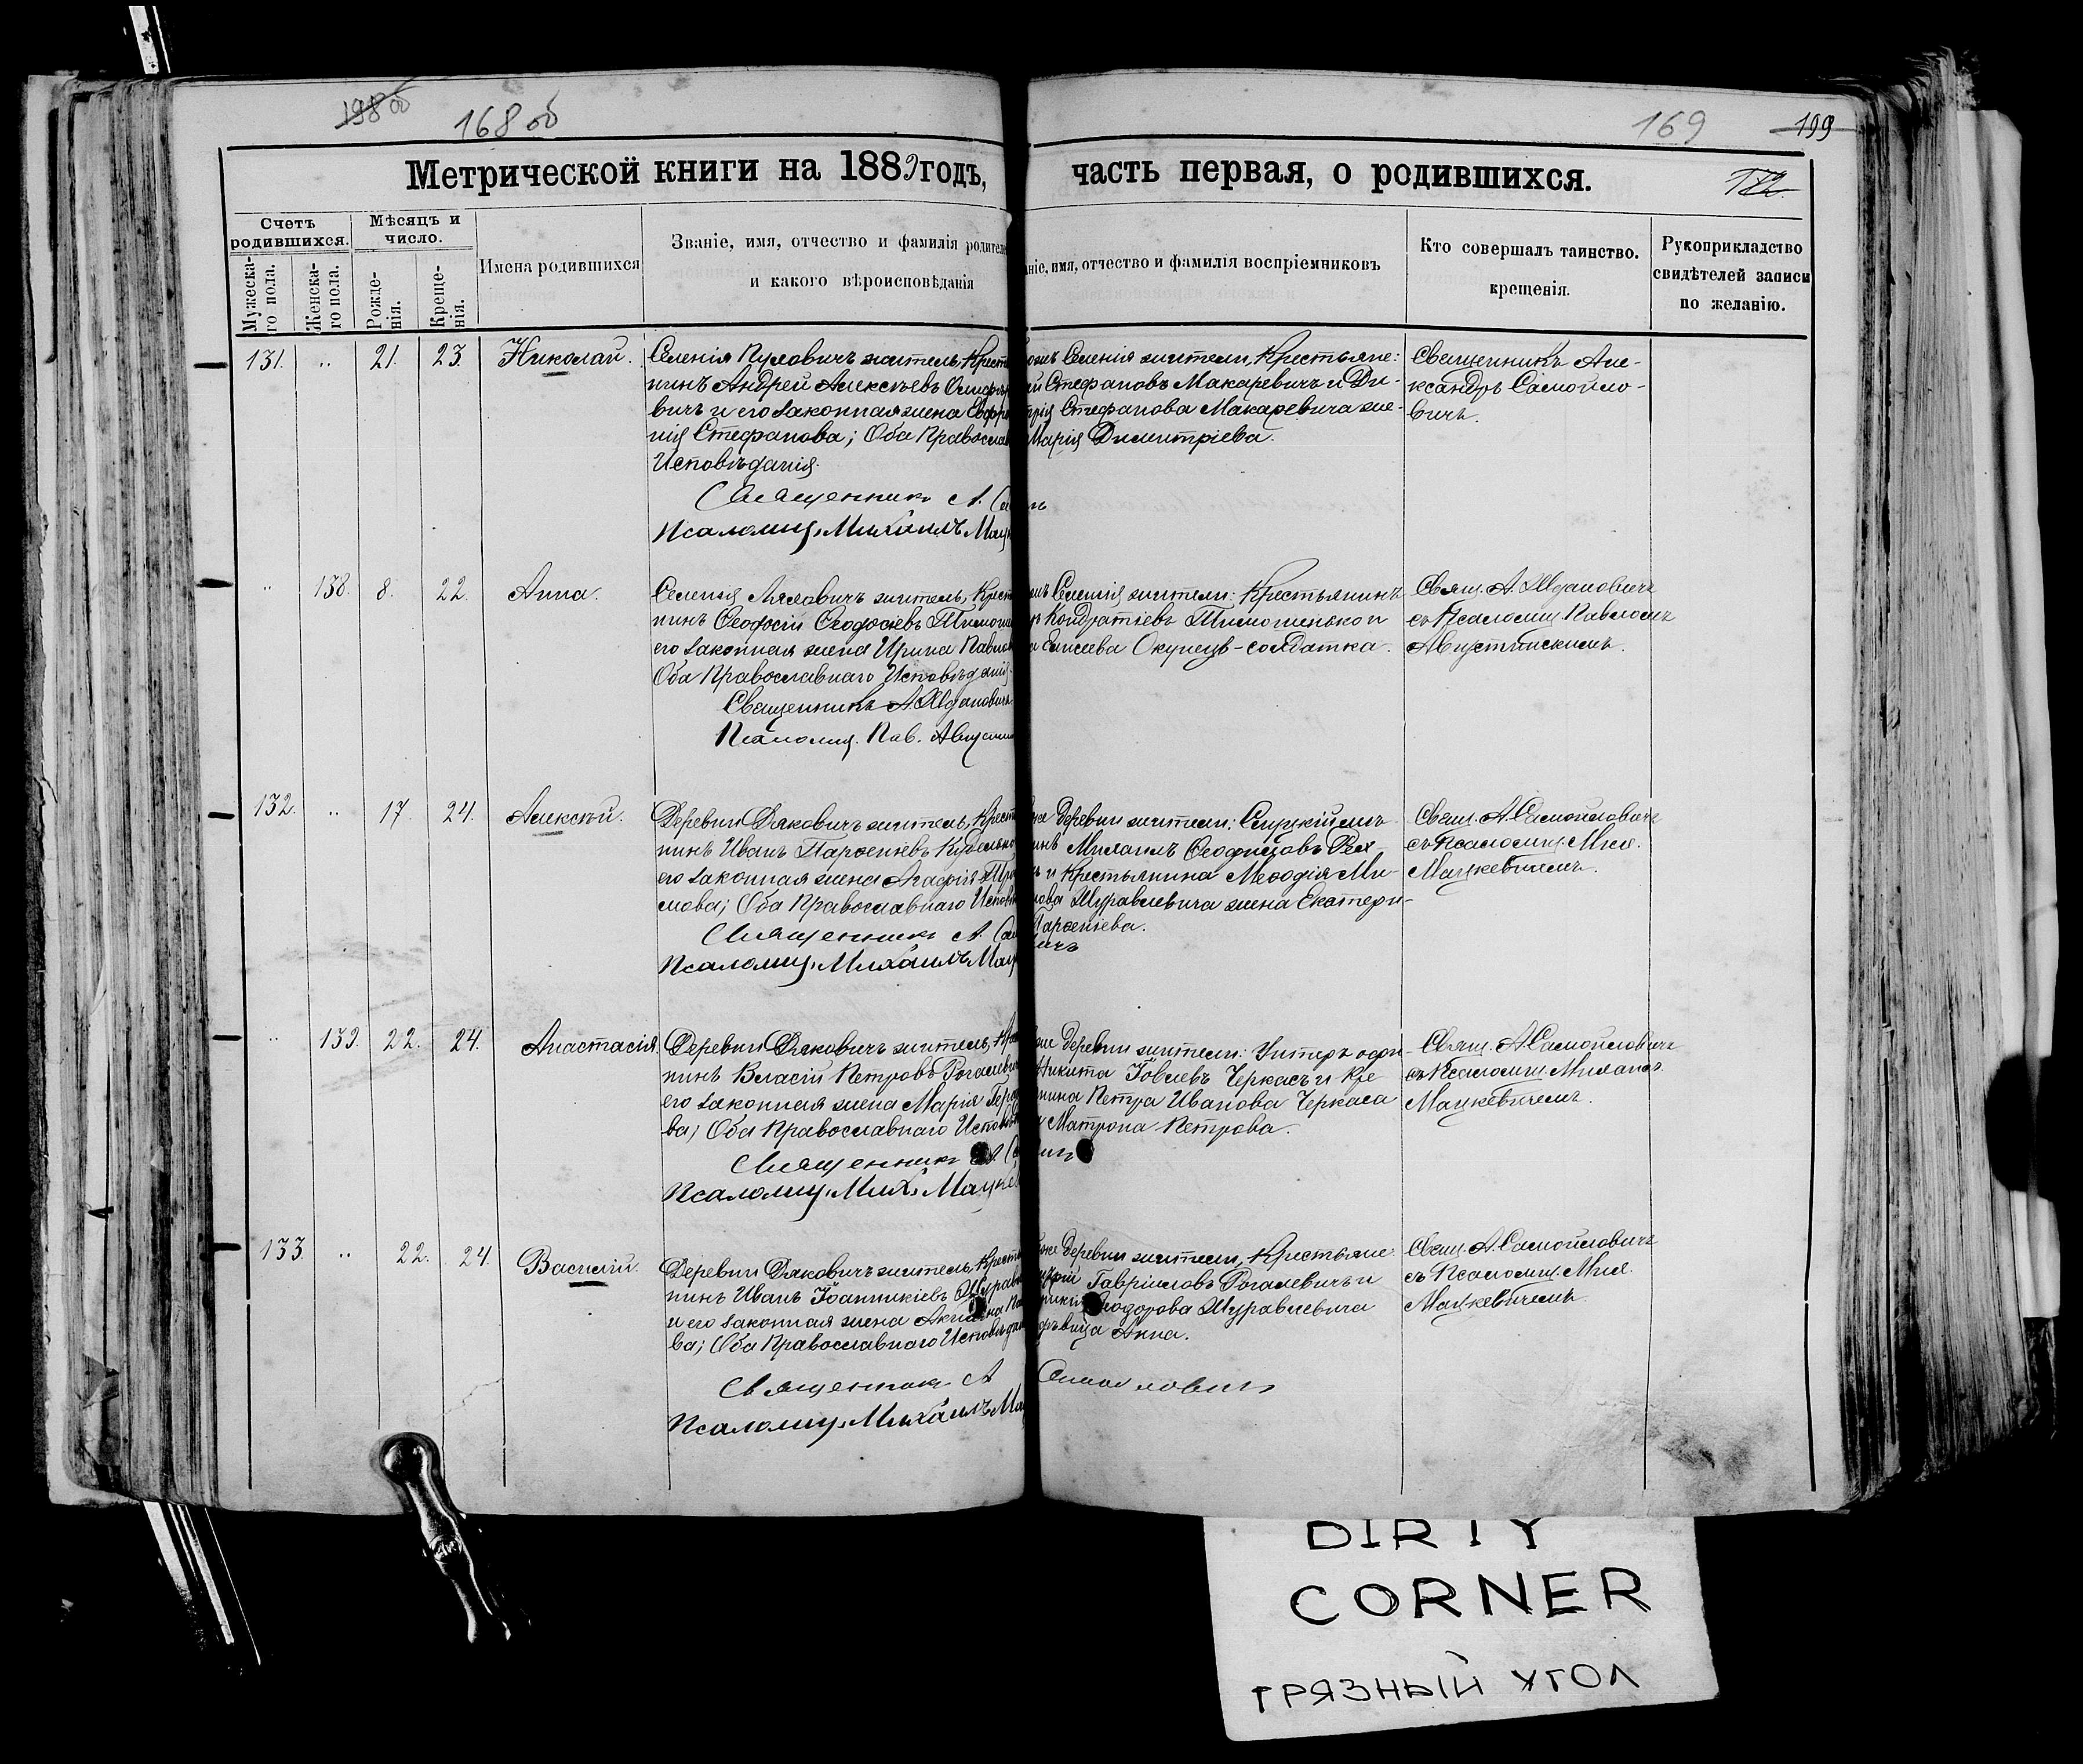 198 об
168 об
169
199
172
Метрической книги на 1889 годъ,
часть первая, о родившихся.
Счетъ родившихся.
Мужеска-
го пола.
Женска-
го пола.
Мѣсяцъ и
число.
Рожде-
нія.
Креще-
нія.
Имена родившихся
Званіе, имя, отчество и фамилія родителе
и какого вѣроисповѣданія
ніе, имя, отчество и фамилія воспріемниковъ
Кто совершалъ таинство.
крещенія.
Рукоприкладство
свидѣтелей записи
по желанію.
131. " 21. 23. Николай.
Селенія Пуховичъ житель, Крест
нинъ Андрей Алексѣевъ
вичъ и его законная жена Евфро
нія Стефанова; Оба Православ
Исповѣданія.
Священникъ А. Са
Псаломщ. Михаилъ Мац
Селенія жители, Крестьяне:
Стефановъ Макаревичъ и Ди-
Стефанова Макаревича же-
Марія Димитріева.
Священникъ Але-
ксандръ Самойло-
вичъ.
" 138. 8. 22. Анна.
Селенія Ляховичъ житель, Крест
нинъ Ѳеодосій Ѳеодосіевъ Тимош
его законная жена Ирина Павло
Оба Православнаго Исповѣданія.
Священникъ А. Ждановичъ
Псаломщ. Пав. Августин
Селенія жители: Крестьянинъ
Кондратіевъ Тимошенько и
Елисеева Окунецъ-солдатка.
Свящ. А. Ждановичъ
съ Псаломщ. Павломъ
Августинскимъ.
132. " 17. 24. Алексѣй.
Деревни Дяковичъ житель, Крест
нинъ Иванъ Парѳеніевъ
его законная жена Агафія
мова; Оба Православнаго Исповѣ
Священникъ А. Сам
Псаломщ. Михаилъ Мац
деревни жители: Слуцкій мѣ
Михаилъ
и Крестьянина Меѳодія Ми-
Журавлевича жена Екатери-
Парѳеніева.
вичъ
Свящ. А. Самойловичъ
съ Псаломщ. Мих.
Мацкевичемъ.
" 139. 22. 24. Анастасія.
Деревни Дяковичъ житель, Кре
нинъ Власій Петровъ Рогалевич
его законная жена Марія Гера
ва; Оба Православнаго Исповѣ
Священникъ А. Са
Псаломщ. Мих. Мацкев
деревни жители: Унтеръ офи-
Никита Іовлевъ Черкасъ и Кре
нина Петра Иванова Черкаса
Матрона Петрова.
Свящ. А. Самойловичъ
съ Псаломщ. Михаил.
Мацкевичемъ.
133. " 22. 24. Василій.
Деревни Дяковичъ житель, Крест
нинъ Иванъ Іоанникіевъ Журавл
и его законная жена Акилина
ва; Оба Православнаго Исповѣдан
Священникъ А
Псаломщ. Михаилъ Мац
деревни жители, Крестьяне
Гавріиловъ Рогалевичъ и
Ѳеодорова Журавлевича
дѣвица Анна.
Самойловичъ
Свящ. А. Самойловичъ
съ Псаломщ. Мих.
Мацкевичемъ.
DIRTY
CORNER
ГРЯЗНЫЙ УГОЛ